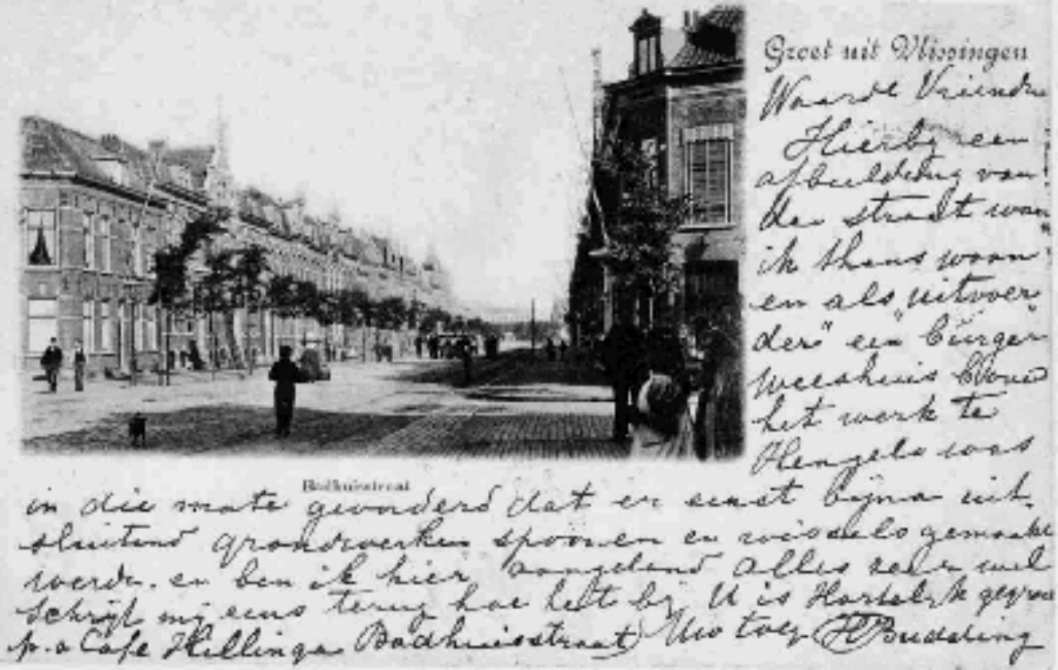 Groet uit Vlissingen
Waarde Vriend
Hierbij een
afbeelding van
de straat waar
ik thans woon
en als "uitvoer
der" een burger
weeshuis bouw
het werk te
Hengelo was
Badhuisstraat
in die mate gevorderd dat er eenst bijna uit-
sluitend grondwerken spooren en wissels gemaakt
werdn. en ben ik hier aangeland alles zeer wel
Schrijf mij eens terug hoe het bij U is Hartelijk
p.a Cafe Hellinga Badhuisstraat Uw toeg H Budding